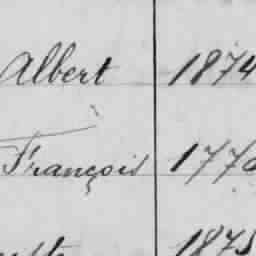 Albert 1874
François
1875